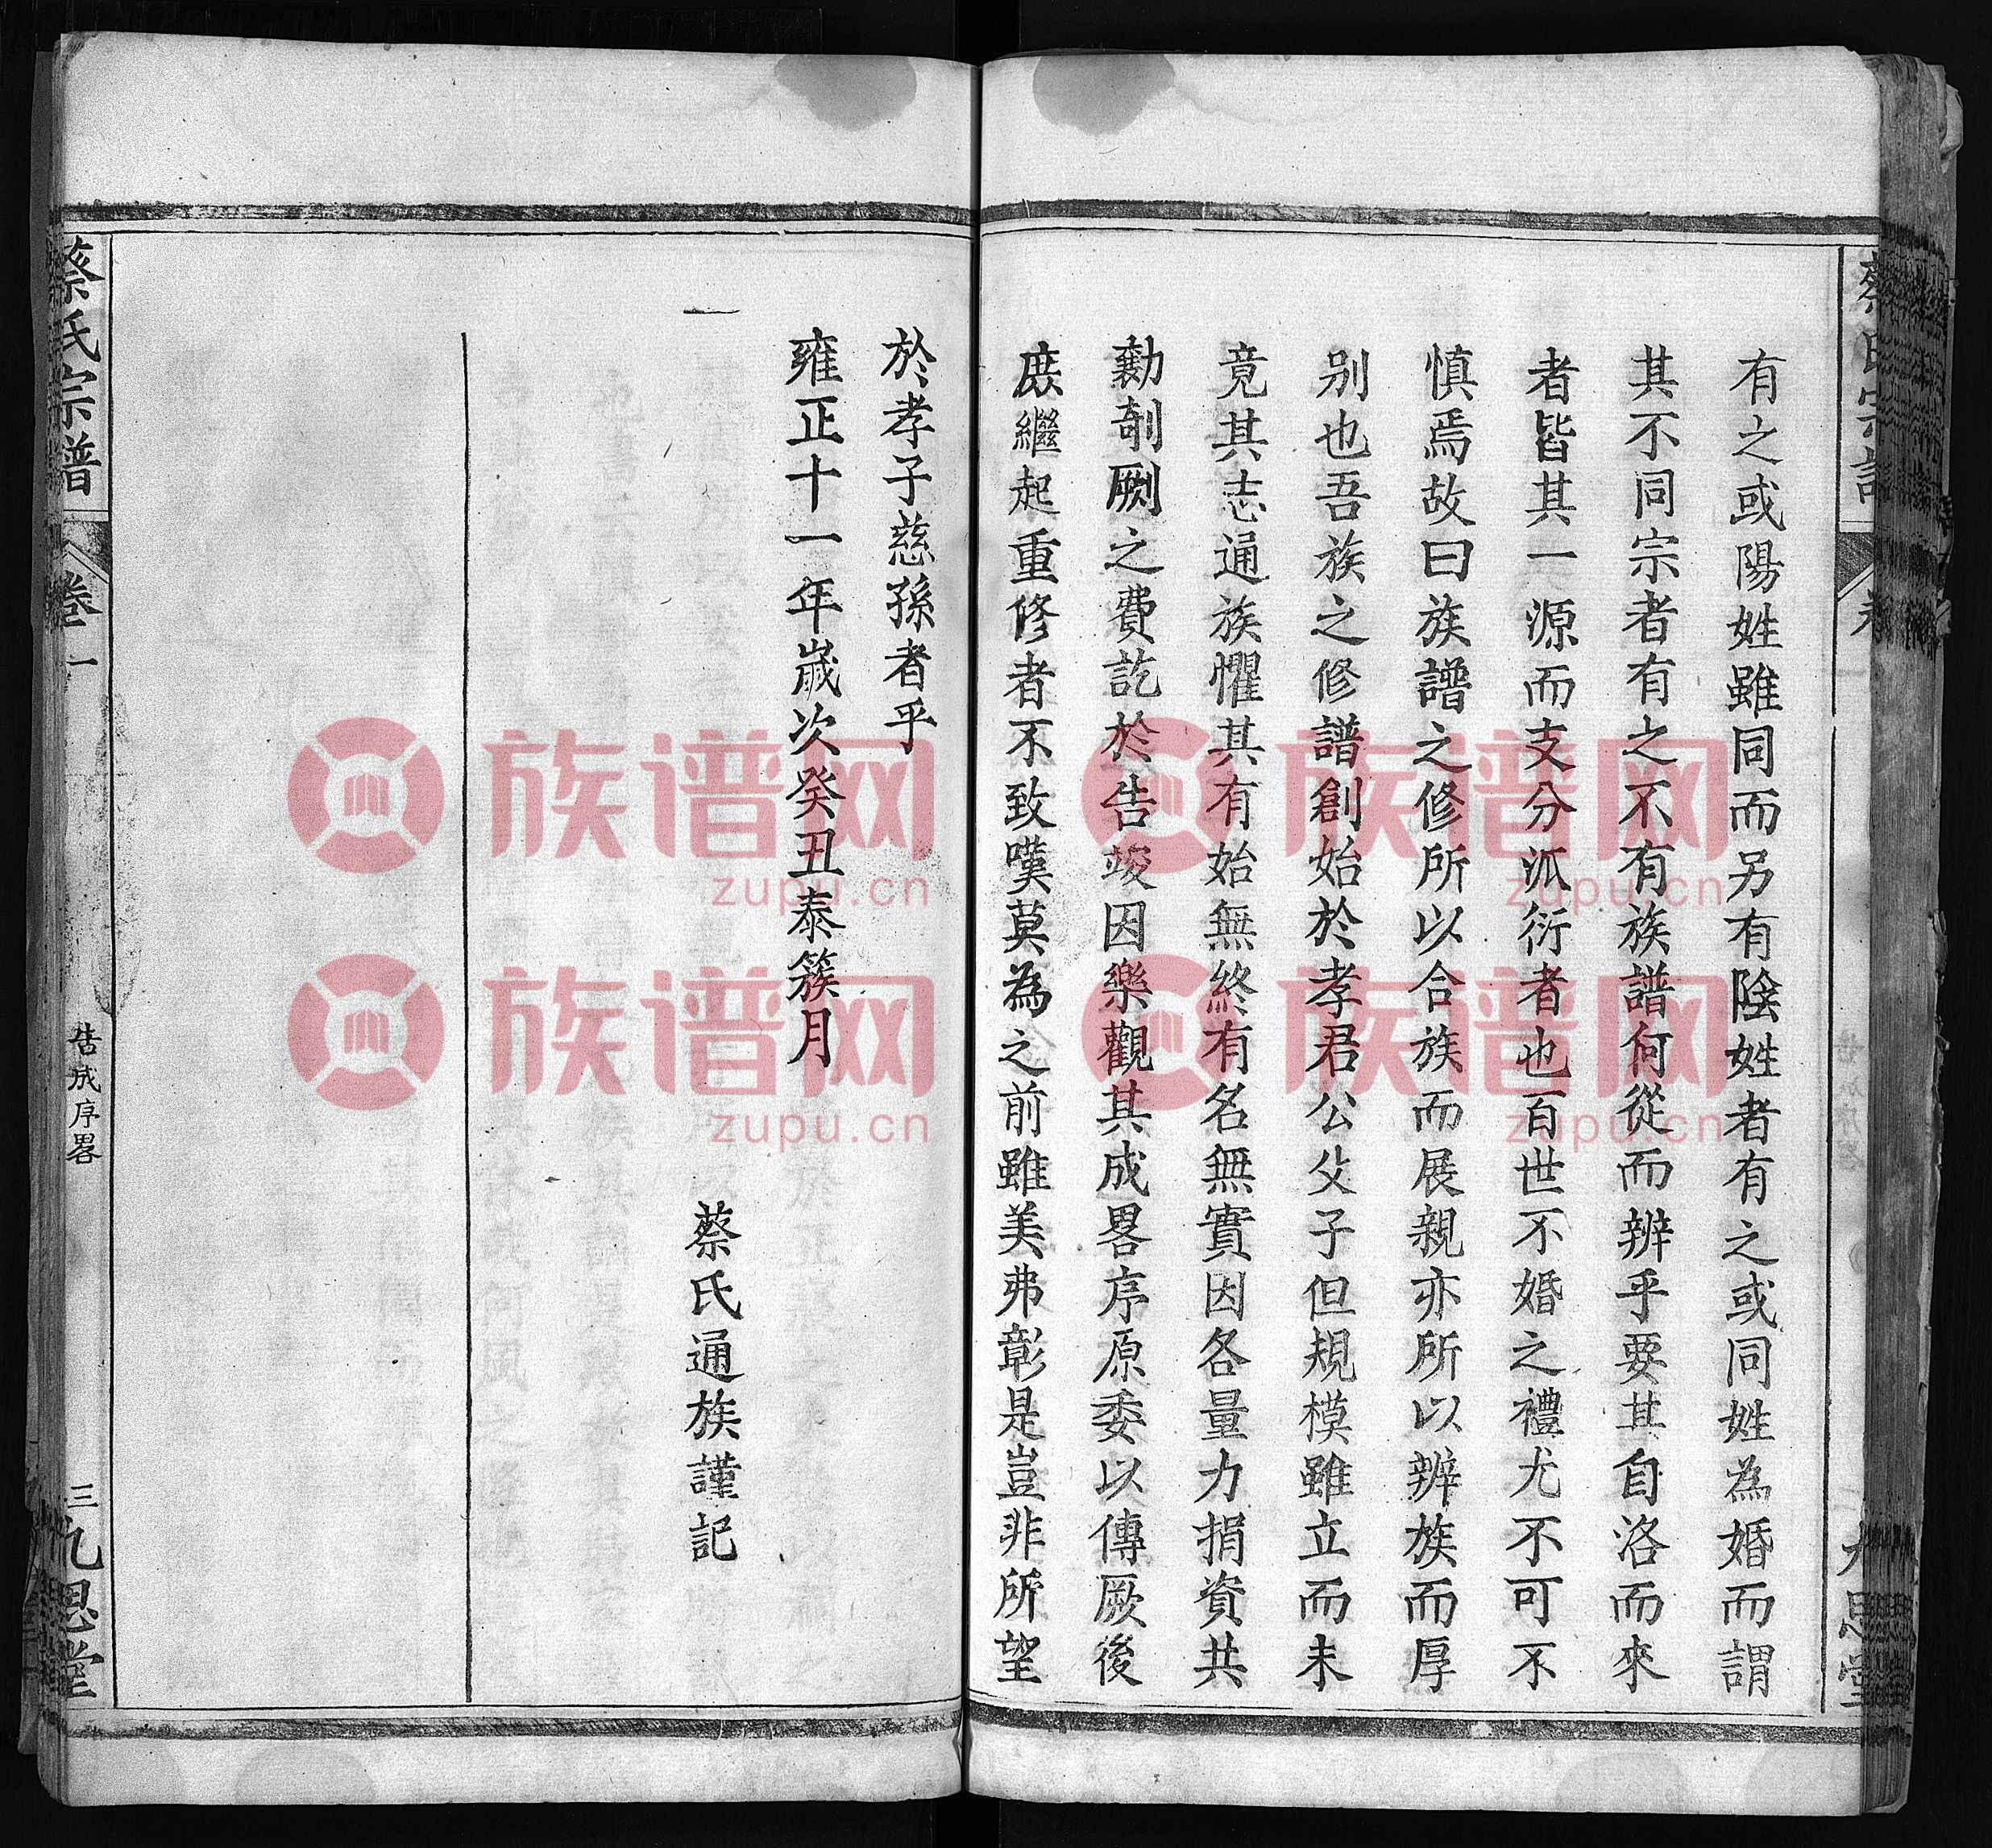 有之或陽姓雖同而另有陰姓者有之或同姓為婚而謂
其不同宗者有之不有族譜何從而辨乎要其自洛而來
者皆其一源而支分派衍者也百世不婚之禮尤不可不
慎焉故曰族譜之修所以合族而展親亦所以辨族而厚
别也吾族之修譜創始於孝君公父子但規模雖立而未
竟其志通族懼其有始無終有名無實因各量力捐資共
勷剞劂之費訖於告竣因樂觀其成畧序原委以傳厥後
庶繼起重修者不致嘆莫為之前雖美弗彰是豈非所望
於孝子慈孫者乎
雍正十一年歲次癸丑泰簇月
蔡氏通族謹記
蔡氏宗譜
卷一
告成序畧
三
九思堂
族谱网
zupu.cn
族谱网
zupu.cn
族谱网
zupu.cn
族谱网
zupu.cn